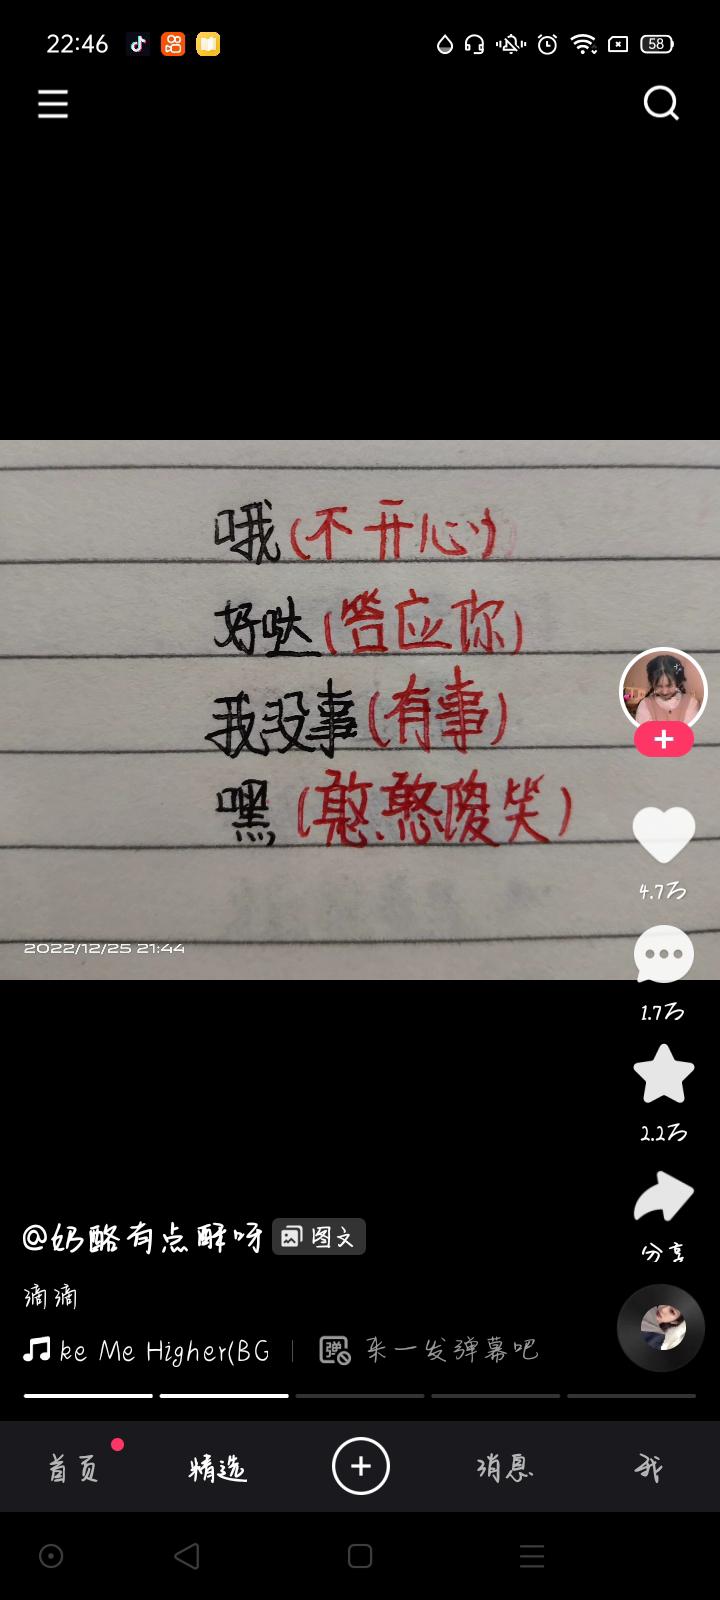 22:46
58
哦(不开心)
好哒(答应你)
我没事(有事)
嘿(憨憨傻笑)
2022/12/25 21:44
4.7万
1.7万
2.2万
分享
@奶酪有点酥呀 图文
滴滴
ke Me Higher(BG
弹 来一发弹幕吧
首页 精选 消息 我